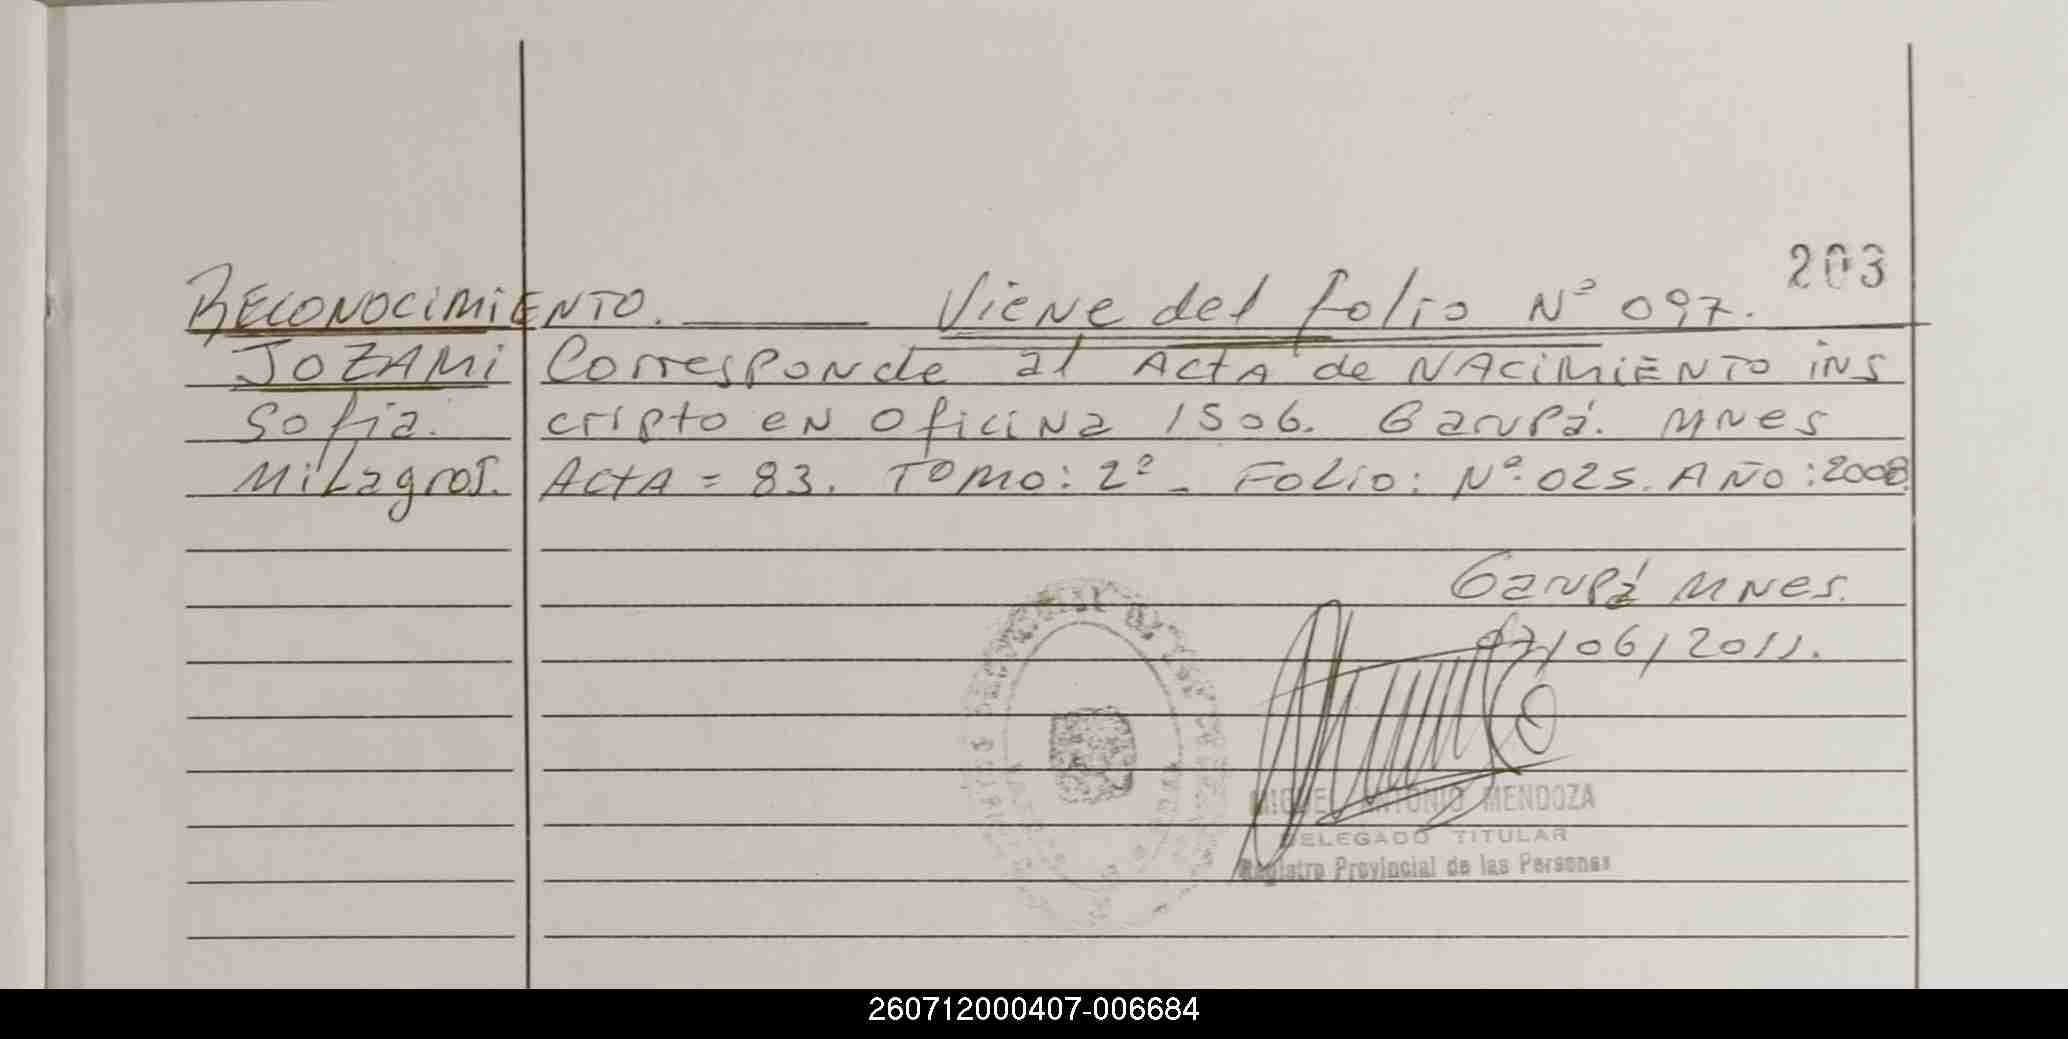 203
RECONOCIMIENTO. Viene del folio Nº 097.
JOZAMI Corresponde al Acta de NACIMIENTO ins
Sofia. cripto en Oficina 1506. Garupá. Mnes
Milagros. Acta = 83. Tomo: 2º - Folio: Nº 025. Año: 2008
Garupá Mnes.
07/06/2011.
MIGUEL ANTONIO MENDOZA
DELEGADO TITULAR
Registro Provincial de las Personas
260712000407-006684